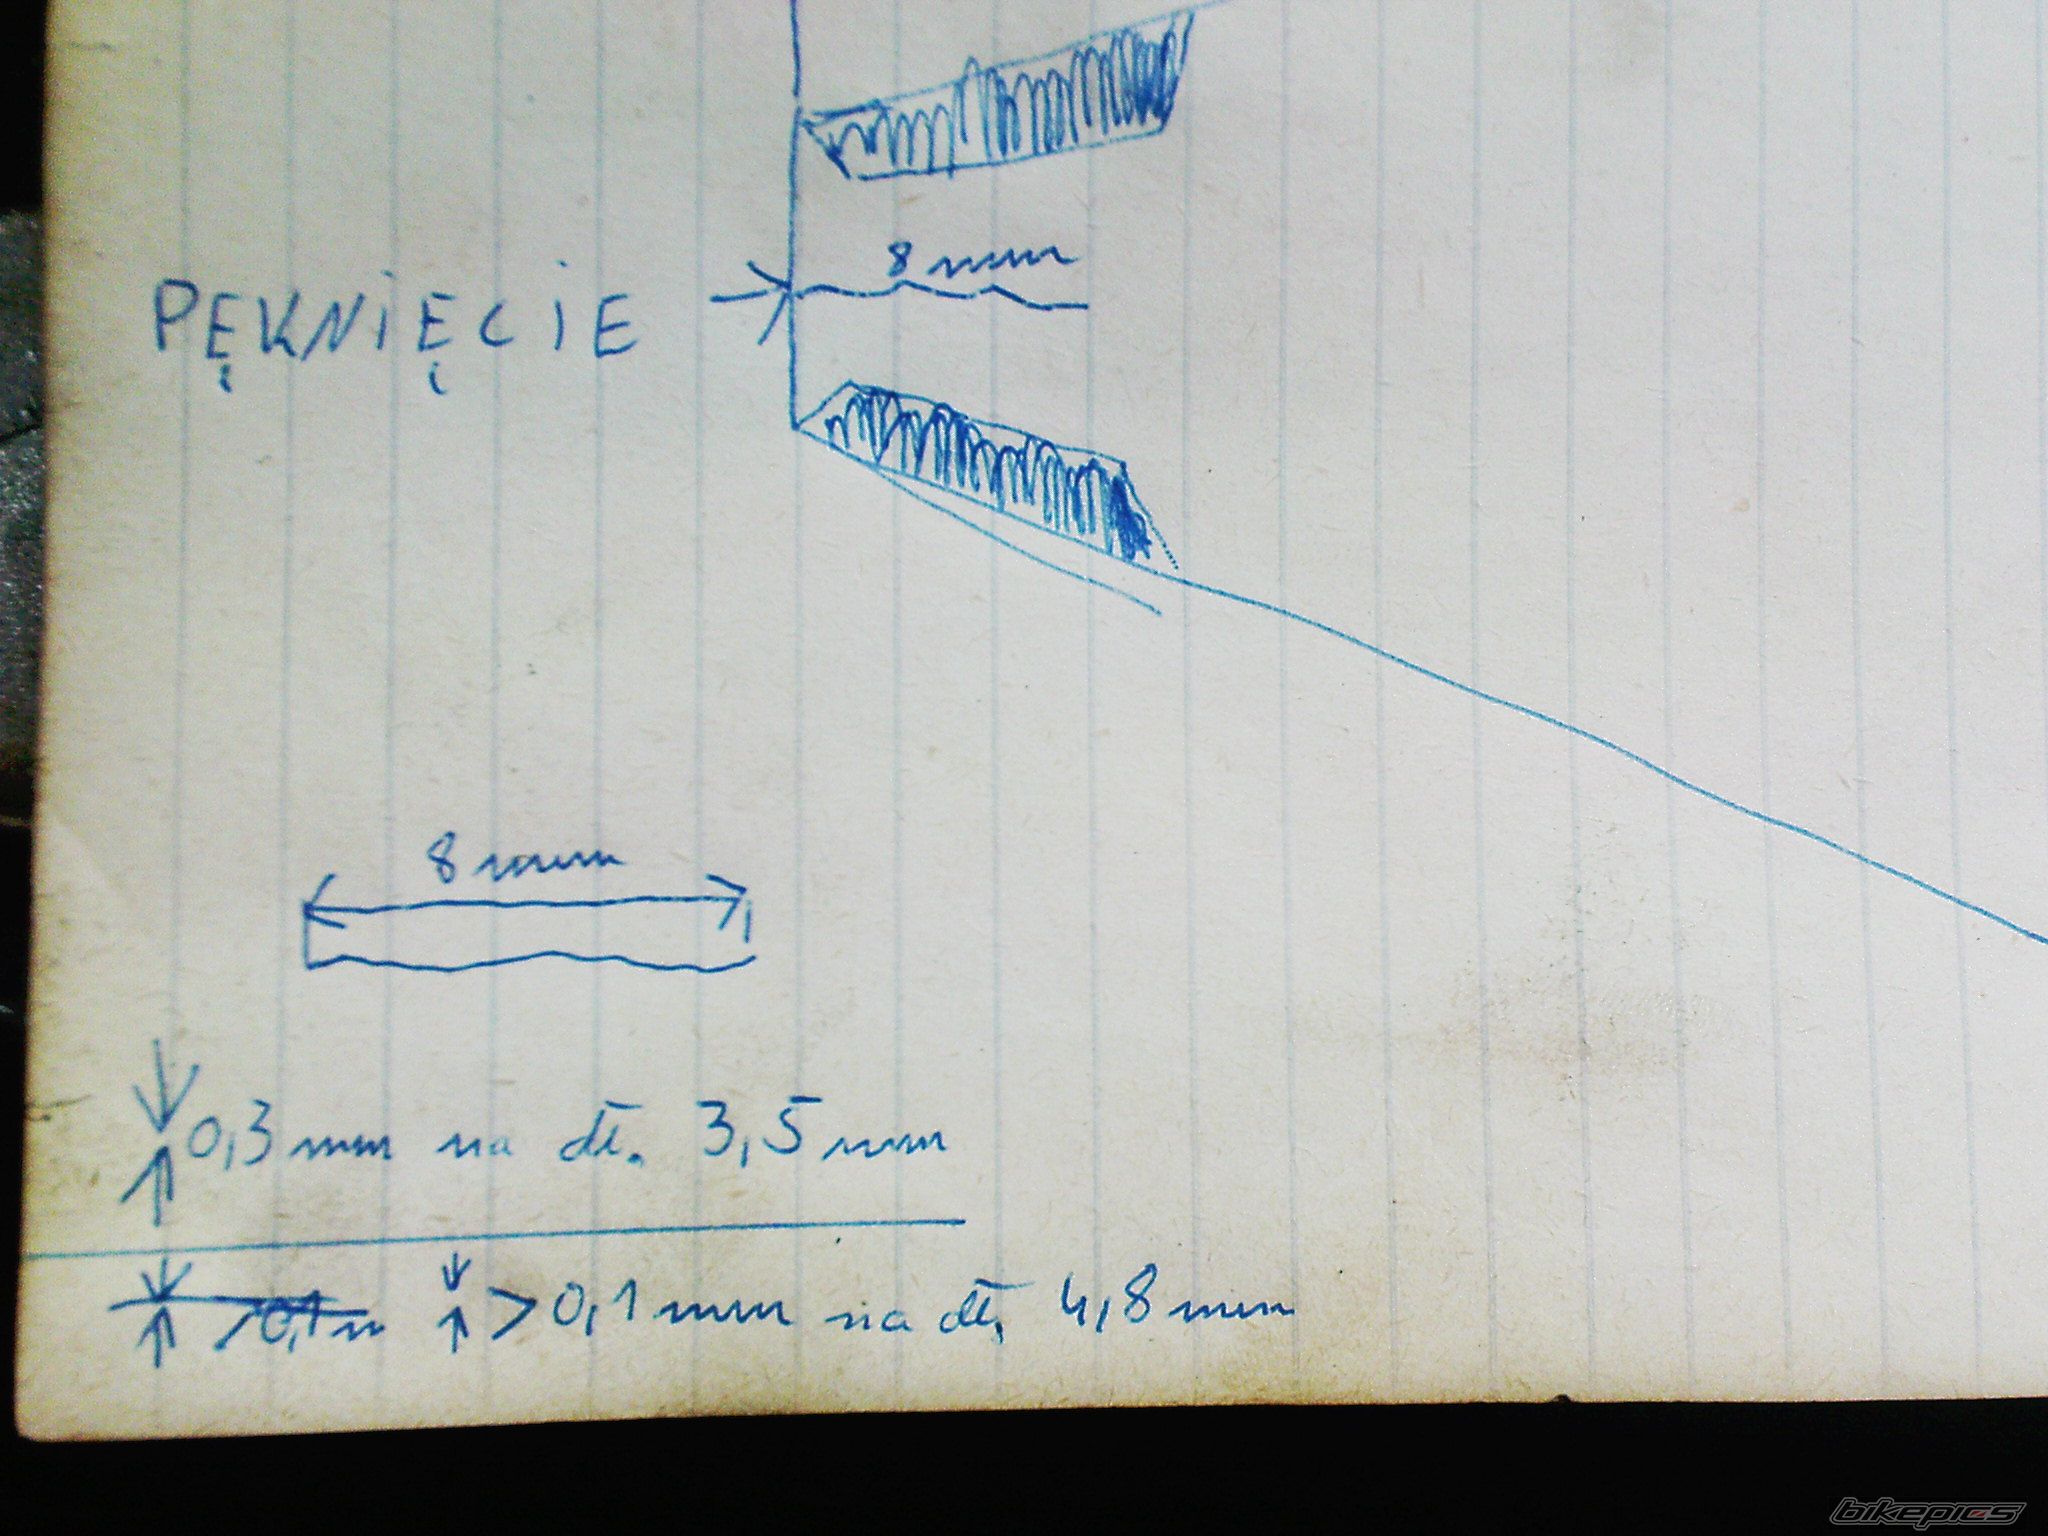 8 mm
PĘKNIĘCIE
8 mm
0,3 mm na dł. 3,5 mm
0,1m >0,1 mm na dł. 4,8 mm
bikepics